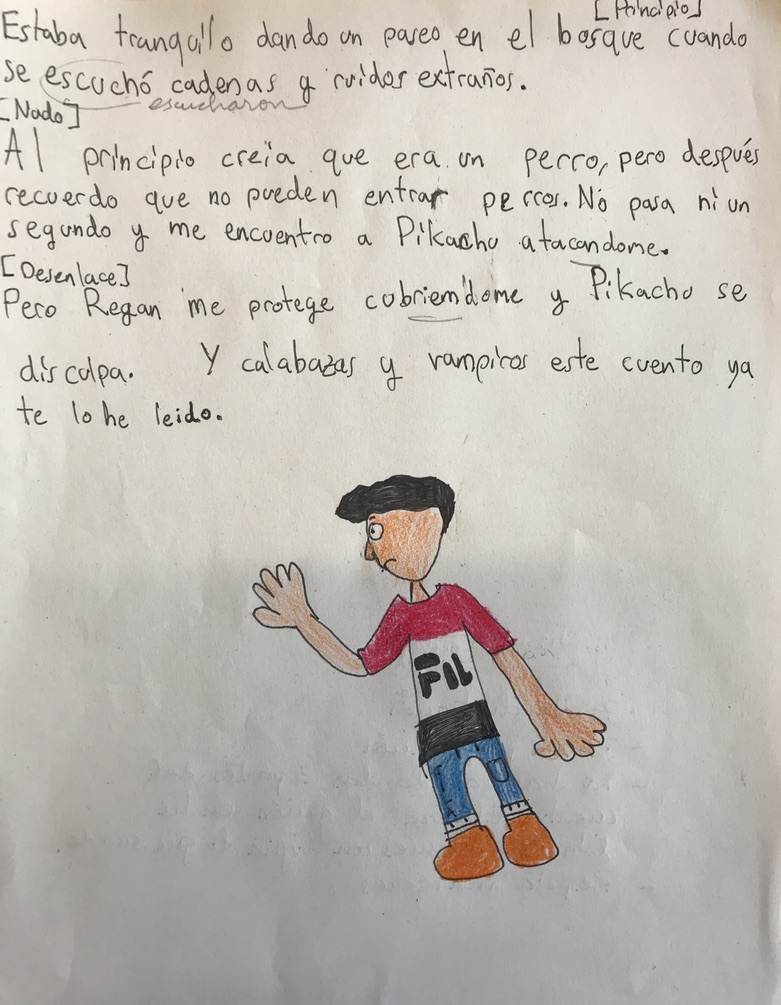 [Principio]
Estaba tranquilo dando un paseo en el bosque cuando
se escuchó cadenas y ruidos extraños.
escucharon
[Nudo]
Al principio creía que era un perro, pero después
recuerdo que no pueden entrar perros. No pasa ni un
segundo y me encuentro a Pikachu atacandome.
[Desenlace]
Pero Regan me protege cubriemdome y Pikachu se
disculpa. Y calabazas y vampiros este cuento ya
te lo he leido.
FIL